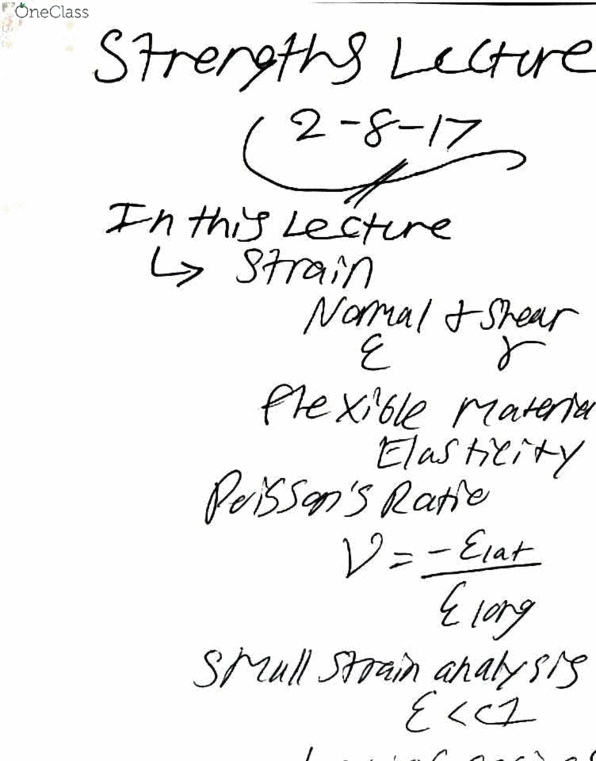 OneClass
Strengths Lecture
2-8-17
In this Lecture
↳ Strain
Normal & Shear
ε γ
Flexible materia
Elasticity
Poisson's Ratio
ν = -εlat
εlong
Small strain analysis
ε <<1